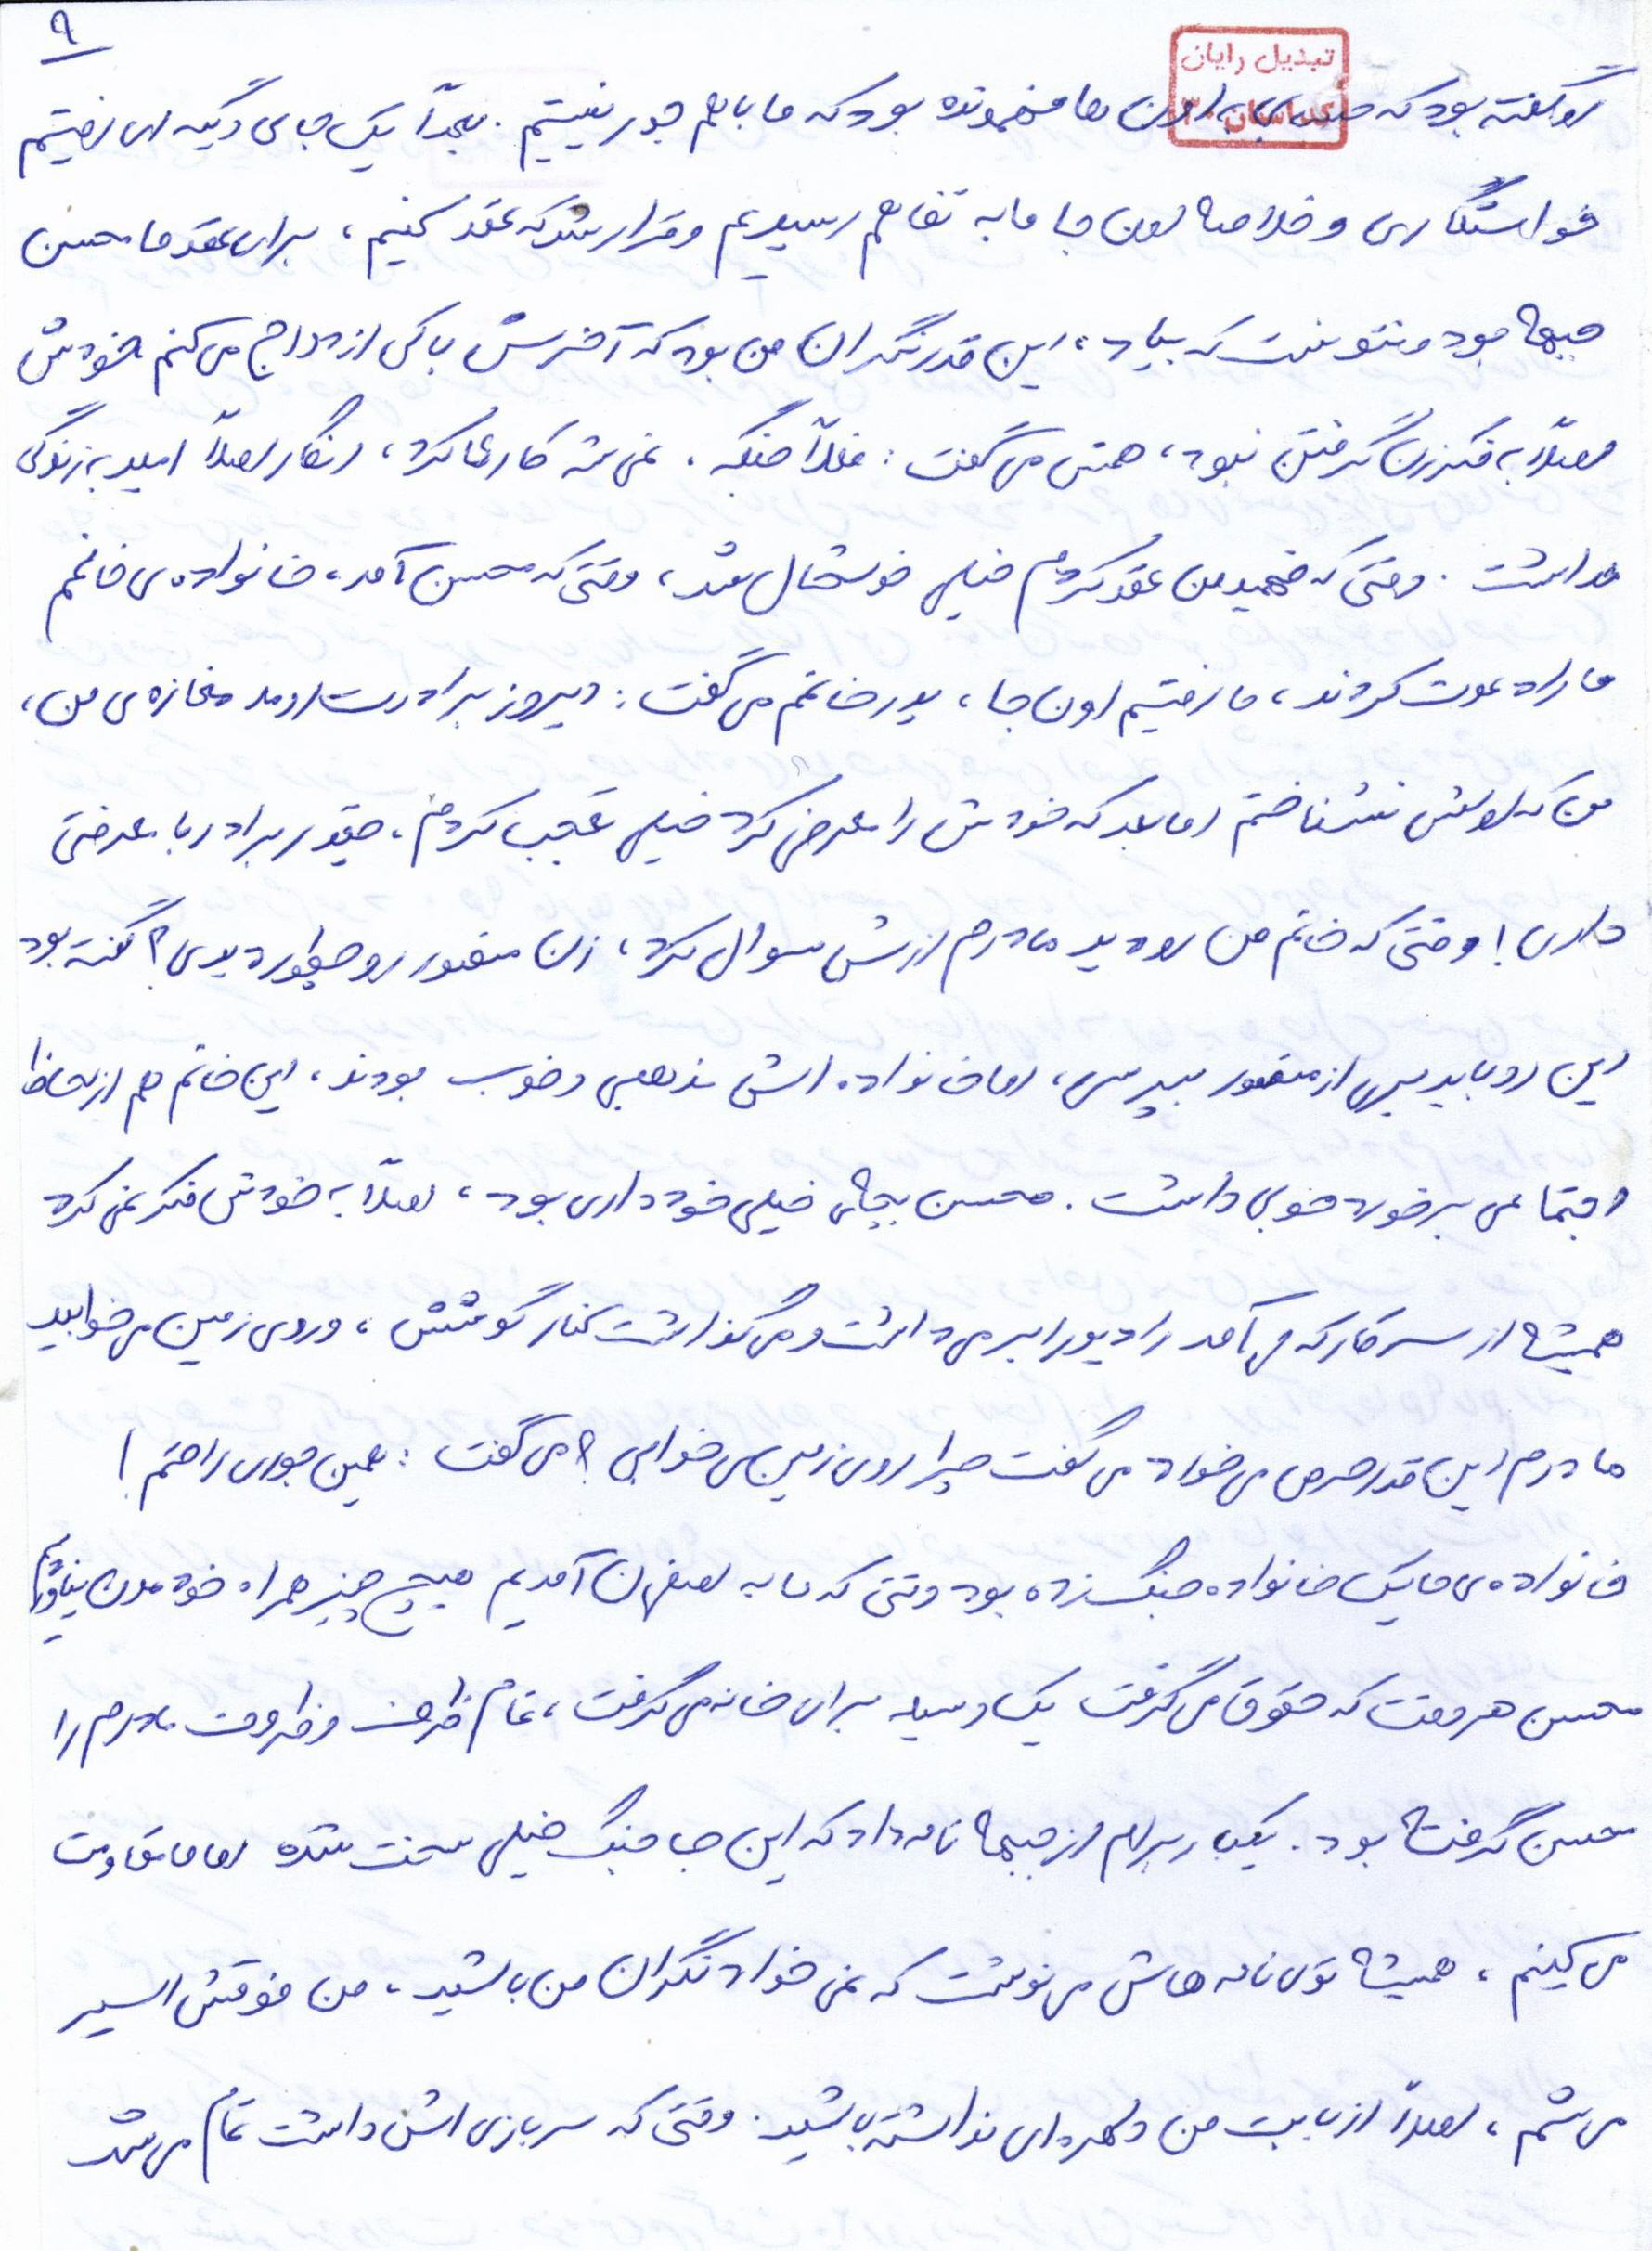 ۹
تبدیل رایان
رو گفته بود که به اون ها فهمونده بود که ما با هم جور نیستیم. مجدداً یک جای دیگه ای رفتیم
خواستگاری و خلاصه اون جا ما به تفاهم رسیدیم و قرار شد که عقد کنیم، برای عقد ما محسن
جبهه بود و نتونست که بیاد، این قدر نگران من بود که آخرش با کی ازدواج می کنم خودش
اصلاً به فکر زن گرفتن نبود، همش می گفت: فعلاً جنگه. نمی شه کار کرد، انگار اصلاً امید به زندگی
نداشت. وقتی که فهمید من عقد کردم خیلی خوشحال شد، وقتی که محسن آمد، خانواده ی خانمم
ما را دعوت کردند، ما رفتیم اون جا، پدر خانم می گفت: دیروز برادرت اومد مغازه ی من،
من که اولش نشناختم اما بعد که خودش را معرفی کرد خیلی تعجب کردم، چقدر برادر با معرفتی
داری! وقتی که خانم من رو دید مادرم ازش سوال کرد، زن منصور رو چطور دیدی؟ گفته بود
این رو باید بری از منصور بپرسی، اما خانواده اش مذهبی و خوب بودند، این خانم هم از لحاظ
اجتماعی برخورد خوبی داشت. محسن بچه ی خیلی خودداری بود، اصلاً به خودش فکر نمی کرد
همیشه از سر کار که می آمد رادیو را برمی داشت و می گذاشت کنار گوشش، و روی زمین می خوابید
مادرم این قدر حرص می خورد می گفت چرا روی زمین می خوابی؟ می گفت: همین جوری راحتم!
خانواده ی ما یک خانواده جنگ زده بود وقتی که ما به اصفهان آمدیم هیچ چیز همراه خودمون نیاوردیم
محسن هر وقت که حقوق می گرفت یک وسیله برای خانه می گرفت، تمام ظرف و ظروف مادرم را
محسن گرفته بود. یکبار برام از جبهه نامه داد که این جا جنگ خیلی سخت شده اما ما مقاومت
می کنیم، همیشه توی نامه هاش می نوشت که نمی خواد نگران من باشید، من فوقش اسیر
می شم، اصلاً از بابت من دلهره ای نداشته باشید. وقتی که سربازی اش داشت تمام می شد